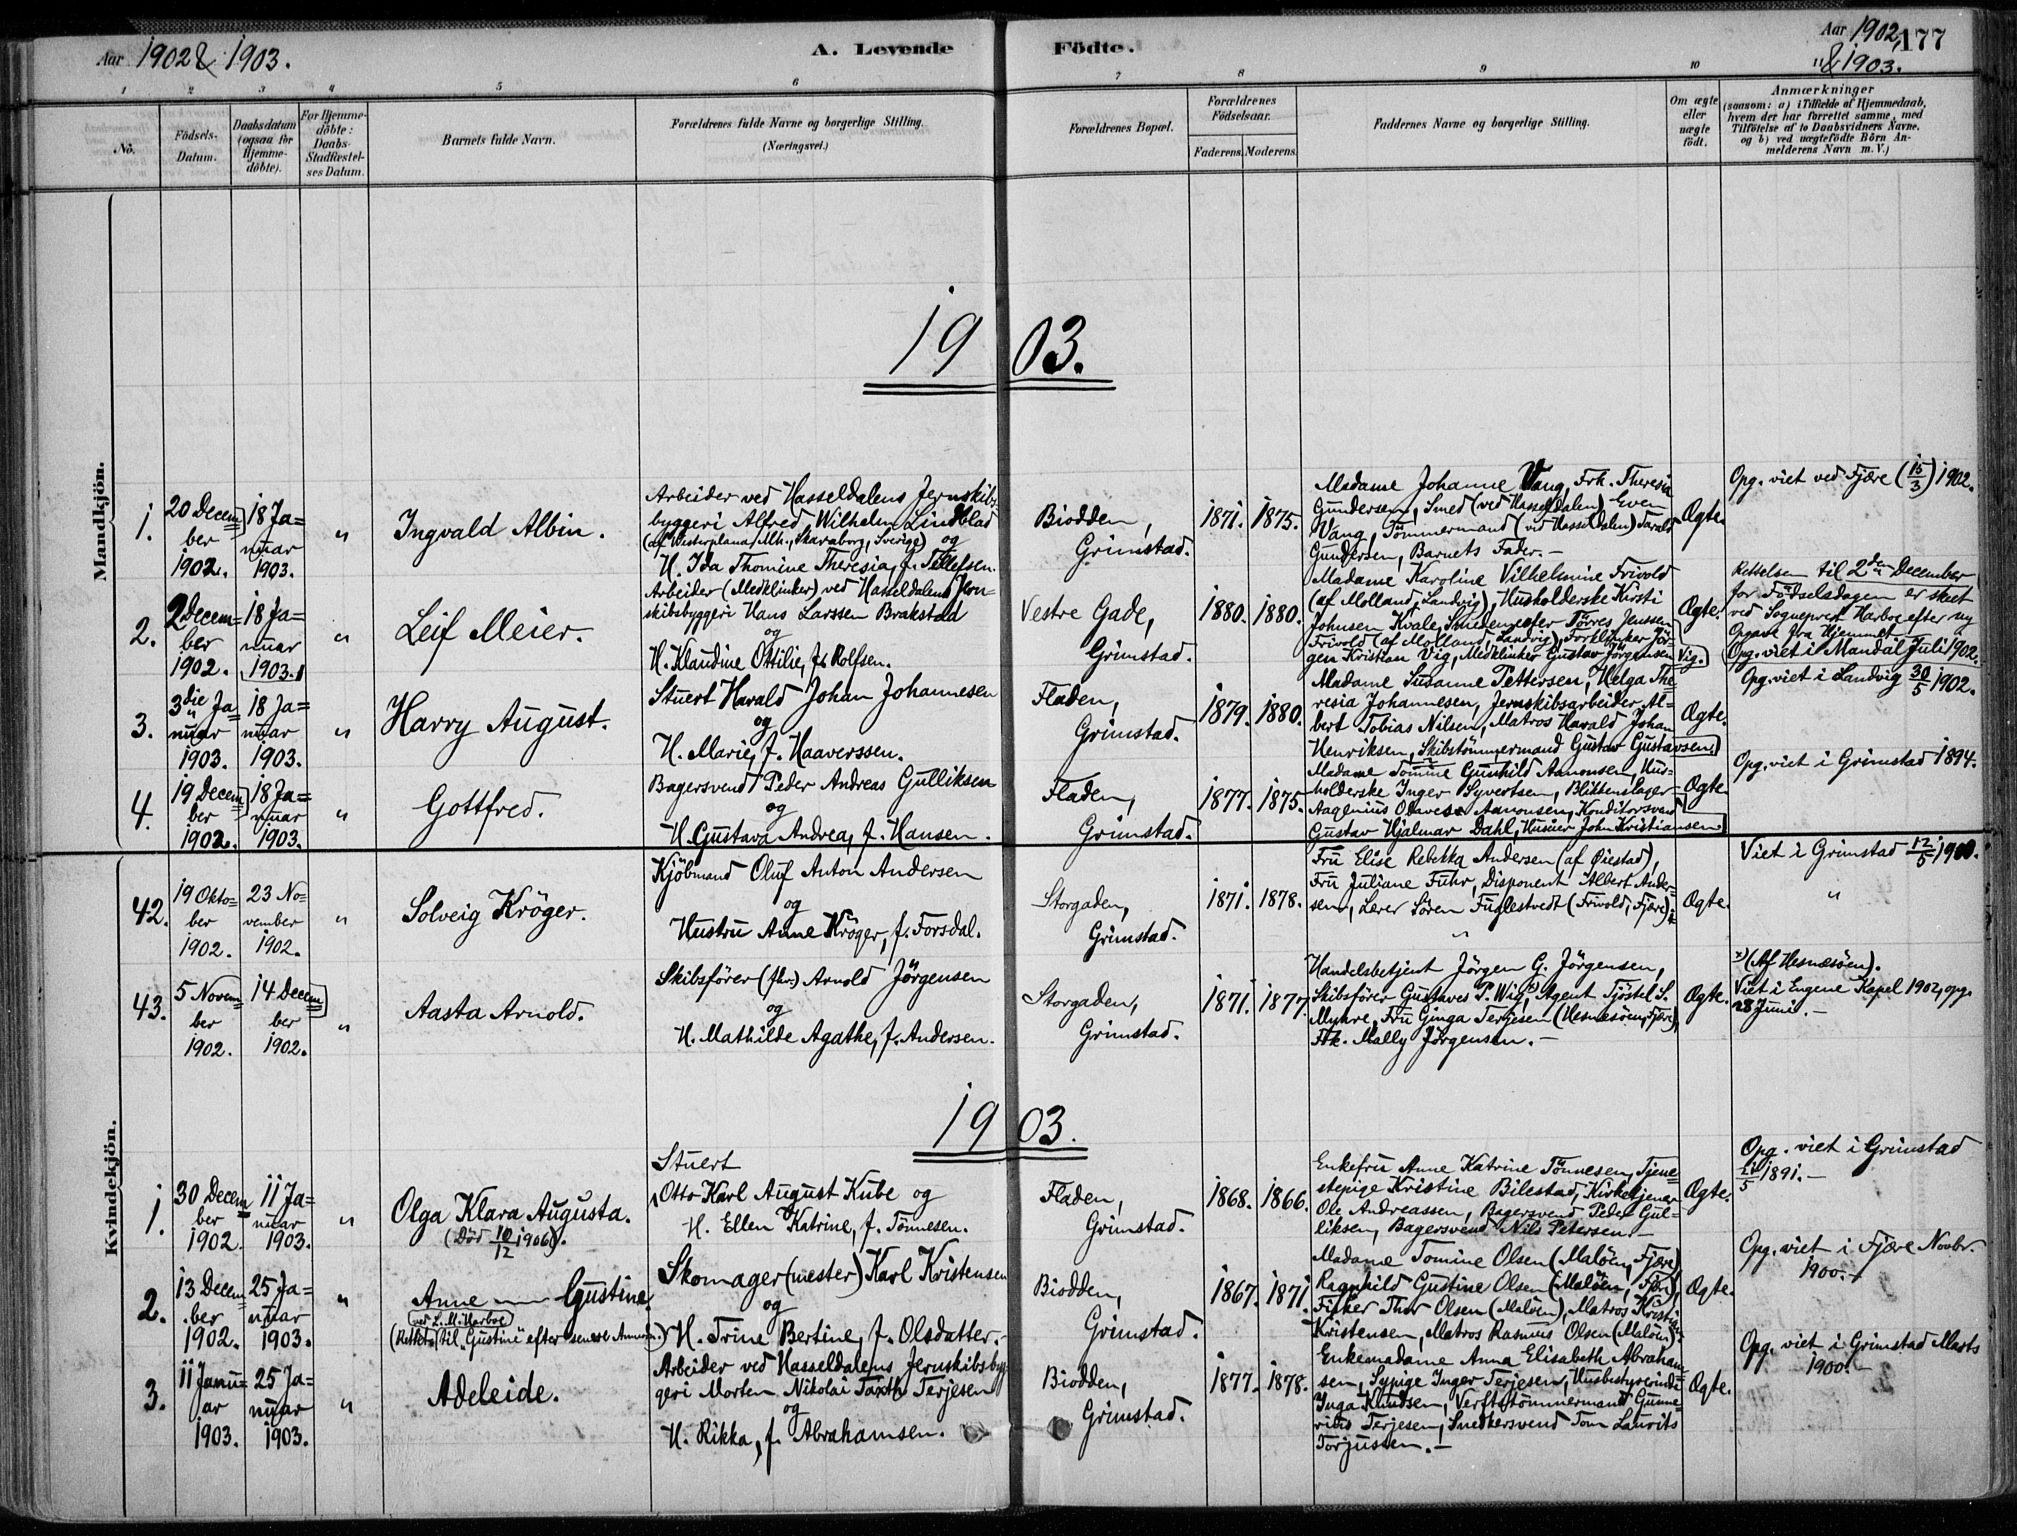 Aar 1902 & 1903.
A. Levende Födte.
Aar 1902, 177
" & 1903.
1 2 3 4 5 6 7 8 9 10
No.
Födsels-
Datum.
Daabsdatum
(ogsaa for
Hjemme-
döbte).
For Hjemme-
döbte:
Daabs-
Stadfæstel-
ses Datum.
Barnets fulde Navn.
Forældrenes fulde Navne og borgerlige Stilling.
(Næringsvei.)
Forældrenes Bopæl.
Forældrenes
Födselsaar.
Faderens. Moderens.
Faddernes Navne og borgerlige Stilling.
Om ægte
eller
uægte
födt.
Anmærkninger
(saasom: a) i Tilfælde af Hjemmedaab,
hvem der har forrettet samme, med
Tilföielse af to Daabsvidners Navne.
og b) ved uægtefödte Börn An-
melderens Navn m. V.)
Mandkjön.
1903.
1.
20 Decem=
ber
1902.
18 Ja=
nuar
1903.
"
Ingvald Albin.
Arbeider ved Hasseldalens Jernskibs-
byggeri Alfred Wilhelm Lindblad
(af Westerplana Mh., Skaraborg, Sverige) og
H. Ida Thomine Theresia, f. Tellefsen.
Biodden,
Grimstad.
1871. 1875.
Madame Johanne Vang, Frk. Theresia
Gundersen, Smed (ved Hasseldalen) Even
Vang, Tömmermand (ved Hasseldalen) Tarald
Gundersen, Barnets Fader.-
Ægte.
Opg. viet ved Fjære (15/3) 1902.
2.
2 Decem=
ber
1902.
18 Ja=
nuar
1903.
"
Leif Meier.
Arbeider (Medklinker) ved Hasseldalens Jern-
skibsbyggeri Hans Larssen Brakstad
og
H. Klaudine Ottilie, f. Rolfsen.
Vestre Gade,
Grimstad.
1880. 1880.
Madame Karoline Vilhelmine Frivold
(af Molland, Landvig), Husholderske Kirsti
Johnsen Kvale, Smedemester Törres Jenssen
Frivold (af Molland, Landvig), Forklinker Jör-
gen Kristian Vig, Medklinker Gustav Jörgensen
Vig.
Ægte.
Rettelsen til 2den December
for Födselsdagen er skeet
ved Sogneprest Harboe efter ny
Opgave fra Hjemmet.
Opg. viet i Mandal Juli 1902.
3.
3die Ja=
nuar
1903.
18 Ja=
nuar
1903.
"
Harry August.
Stuert Harald Johan Johannesen
og
H. Marie, f. Haaverssen.
Fladen,
Grimstad.
1879. 1880.
Madame Susanne Pettersen, Helga The=
resia Johannesen, Jernskibsarbeider Al-
bert Tobias Nilsen, Matros Harald Johan
Henriksen, Skibstömmermand Gustav Gustavsen.
Ægte.
Opg. viet i Landvig 30/5 1902.
4.
19 Decem=
ber
1902.
18 Ja=
nuar
1903.
"
Gottfred.
Bagersvend Peder Andreas Gulliksen
og
H. Gustava Andrea, f. Hansen.
Fladen,
Grimstad.
1877. 1875.
Madame Tomine Gunhild Aanonsen, Hus-
holderske Inger Syvertsen, Blikkenslager-
Aagenius Olaves Aanonsen, Konditorsvend
Gustav Hjalmar Dahl, Husier John Kristiansen
Ægte.
Opg. viet i Grimstad 1894.
Kvindekjön.
42.
19 Okto=
ber
1902.
23 No=
vember
1902.
"
Solveig Kröger.
Kjöbmand Oluf Anton Andersen
og
Hustru Anne Kröger, f. Forsdal.
Storgaden,
Grimstad.
1871. 1878.
Fru Elise Rebekka Andersen (af Öiestad),
Fru Juliane Fuhr, Disponent Albert Ander-
sen, Lærer Sören Fuglestvedt (Frivold, Fjære)
"
Ægte.
Viet i Grimstad 12/5 1900.
"
43.
5 Novem=
ber
1902.
14 Decem=
ber
1902.
"
Aasta Arnold.
Skibsförer (fhv.) Arnold Jörgensen
og
H. Mathilde Agathe, f. Andersen.
Storgaden,
Grimstad.
1871. 1877.
Handelsbetjent Jörgen G. Jörgensen,
Skibsförer Gustaves P. Wig, Agent Tjöstel S.
Myhre, Fru Ginga Terjesen (Hesnæsöen, Fjære)
Frk. Mally Jörgensen.-
Ægte.
(Af Hesnæsöen).
Viet i Engene Kapel 1902, opg.
28 Juni.-
1903.
1.
30 Decem=
ber
1902.
11 Ja=
nuar
1903.
"
Olga Klara Augusta.
(Död 10/12 1906).
Stuert
Otto Karl August Kube og
H. Ellen Katrine, f. Tönnesen.
Fladen,
Grimstad.
1868. 1866.
Enkefru Anne Katrine Tönnesen, Tjene-
stepige Kristine Bilestad, Kirketjener
Ole Andreassen, Bagersvend Peder Gul-
liksen, Bagersvend Nils Petersen.-
Ægte.
Opg. viet i Grimstad
/5 1891.-
2.
13 Decem=
ber
1902.
25 Ja=
nuar
1903.
"
Anne Gustine.
ved L. M. Harboe
(Rettet til "Gustine" efter senere Anmodn.)
Skomager(mester) Karl Kristensen
og
H. Trine Bertine, f. Olsdatter.-
Biodden,
Grimstad.
1867. 1871.
Madame Tomine Olsen (Malöen, Fjære)
Ragnhild Gustine Olsen (Malöen, Fjære),
Fisker Thor Olsen (Malöen), Matros Kristian
Kristensen, Matros Rasmus Olsen (Malöen)
Ægte.
Opg. viet i Fjære Novbr.
1900.-
3.
11 Janu=
ar
1903.
25 Ja=
nuar
1903.
"
Adeleide.
Arbeider ved Hasseldalens Jernskibsbyg-
geri Morten Nikolai Taxth Terjesen
og
H. Rikka, f. Abrahamsen.
Biodden,
Grimstad.
1877. 1878.
Enkemadame Anna Elisabeth Abraham-
sen, Sypige Inger Terjesen, Husbestyrerinde
Inga Knudsen, Verftstömmermand Gunne-
rius Terjesen, Snedkersvend Tom Laurits
Torjussen.-
Ægte.
Opg. viet i Grimstad Marts
1900.-